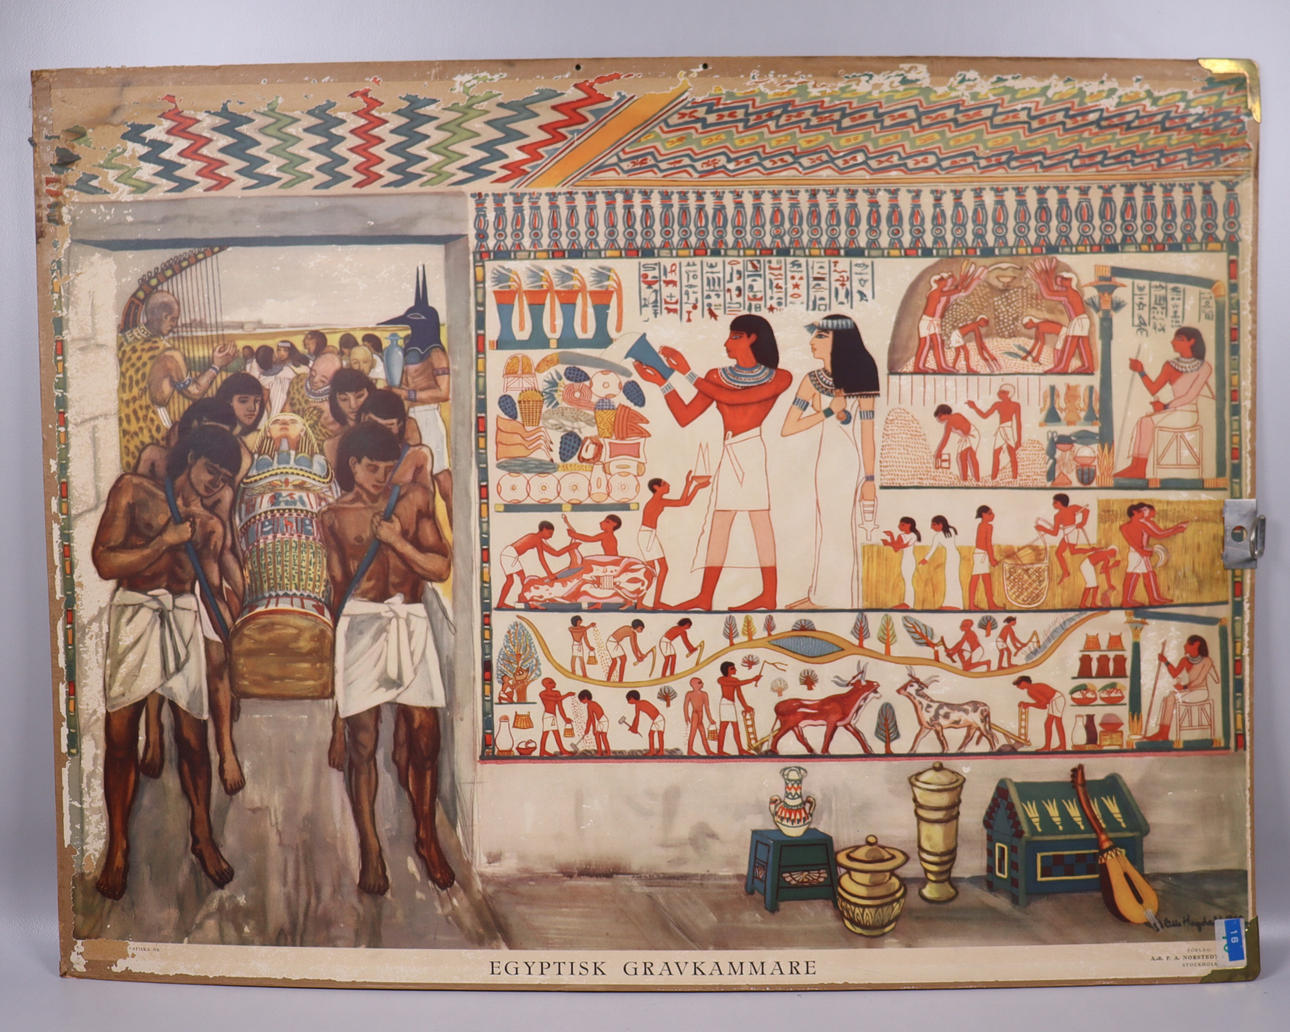 EGYPTISK GRAVKAMMARE
FÖRLAG:
A.-B. P. A. NORSTEDT
STOCKHOLM
16